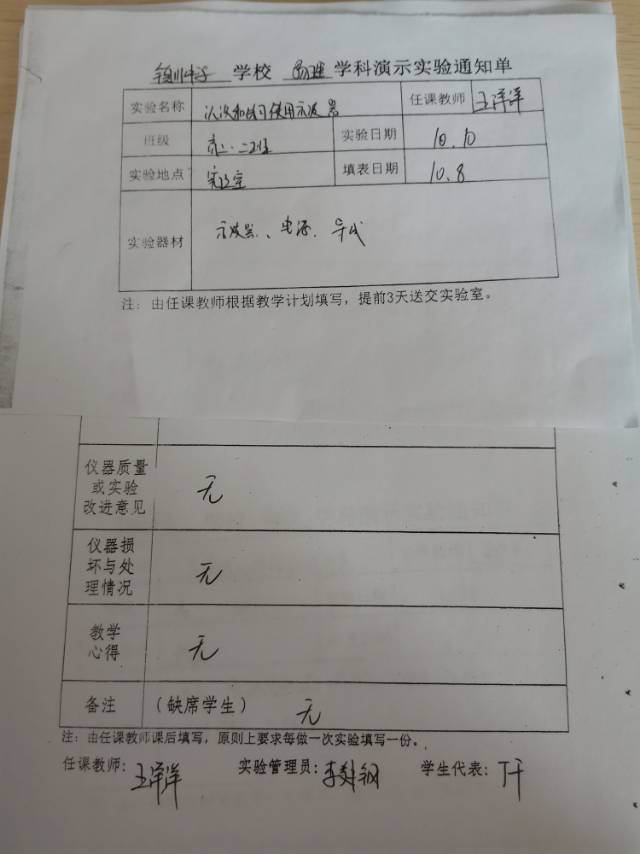 学校 物理 学科演示实验通知单
实验名称 认识和练习使用示波器 任课教师 王洋洋
班级 实验日期 10.10
实验地点 实验室 填表日期 10.8
实验器材 示波器、电源、导线
注：由任课教师根据教学计划填写，提前3天送交实验室。
仪器质量
或实验
改进意见 无
仪器损
坏与处
理情况 无
教学
心得 无
备注 （缺席学生） 无
注：由任课教师课后填写，原则上要求每做一次实验填写一份。
任课教师：王洋洋 实验管理员： 学生代表：丁千